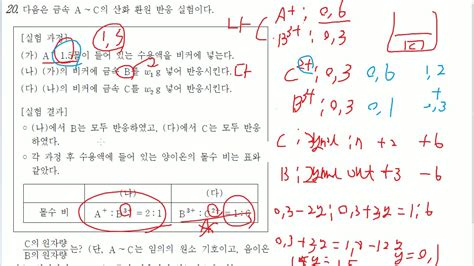 20. 다음은 금속 A ~ C의 산화 환원 반응 실험이다.
[실험 과정]
(가) A 1.5몰이 들어 있는 수용액을 비커에 넣는다.
(나) (가)의 비커에 금속 B를 w₁ g 넣어 반응시킨다.
(다) (나)의 비커에 금속 C를 w₂ g 넣어 반응시킨다.
[실험 결과]
○ (나)에서 B는 모두 반응하였고, (다)에서 C는 모두 반응
하였다.
○ 각 과정 후 수용액에 들어 있는 양이온의 몰수 비는 표와
같았다.
(나) (다)
몰수 비 A⁺ : B³⁺ = 2 : 1 B³⁺ : C²⁺ = 1 : 6
C의 원자량
B의 원자량
는? (단, A ~ C는 임의의 원소 기호이고, 음이온
1,5
2
A+ ; 0,6
B3+ ; 0,3
C
C2+ ; 0,3 0,6 1,2
B3+ ; 0,3 0,1 -,3
C ; 2ymol in +2 +6
B ; 2ymol out +3 -6
0,3-2y ; 0,3+3y = 1 ; 6
0,3+3y = 1,8-12y
15y = 1,5
y = 0,1